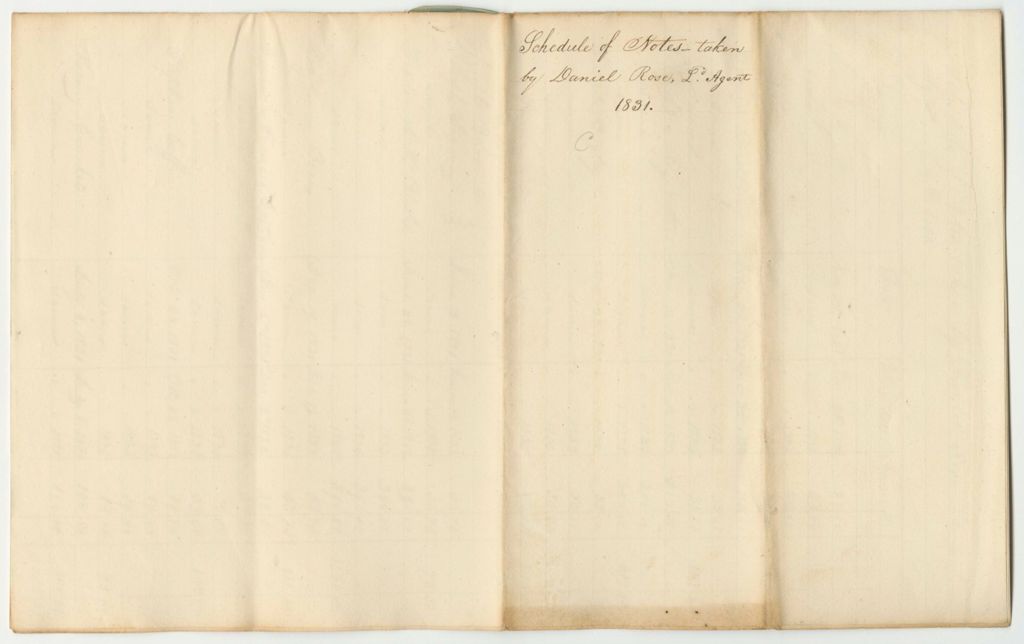 Schedule of Notes - taken
by Daniel Rose, Ld. Agent
1831.
C